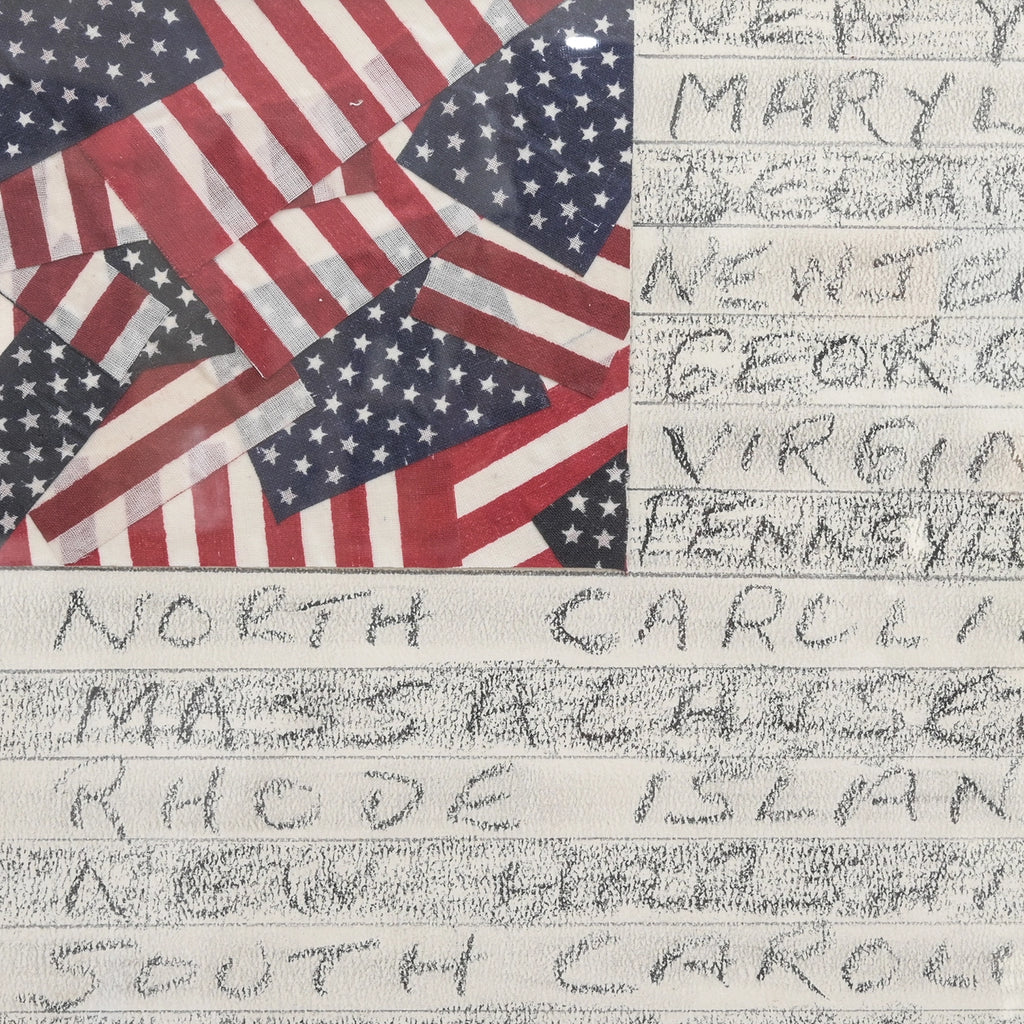 NEW Y
MARYL
DELAW
NEW JE
GEORG
VIRGIN
PENNSYL
NORTH CAROLI
MASSACHUSE
RHODE ISLAN
NEW HAMPSH
SOUTH CAROLI